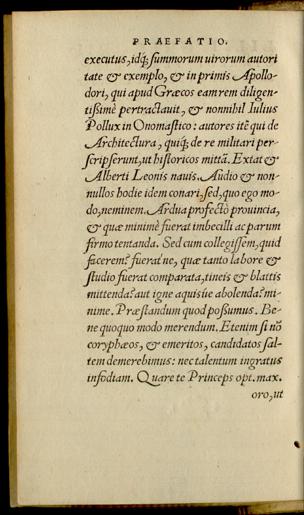 PRAEFATIO.
executus, idq́; summorum uirorum autori
tate & exemplo, & in primis Apollo-
dori, qui apud Græcos eam rem diligen-
tissimè pertractauit, & nonnihil Iulius
Pollux in Onomastico: autores itē qui de
Architectura, quiq́; de re militari per-
scripserunt, ut historicos mittā. Extat &
Alberti Leonis nauis. Audio & non-
nullos hodie idem conari, sed, quo ego mo-
do, neminem. Ardua profectò prouincia,
& quæ minimè fuerat imbecilli ac parum
firmo tentanda. Sed cum collegissem, quid
facerem? fuerat ne, quæ tanto labore &
studio fuerat comparata, tineis & blattis
mittenda? aut igne aquisúe abolenda? mi-
nime. Præstandum quod possumus. Be-
ne quoquo modo merendum. Etenim si nō
coryphæos, & emeritos, candidatos sal-
tem demerebimus: nec talentum ingratus
infodiam. Quare te Princeps opt. max.
oro, ut